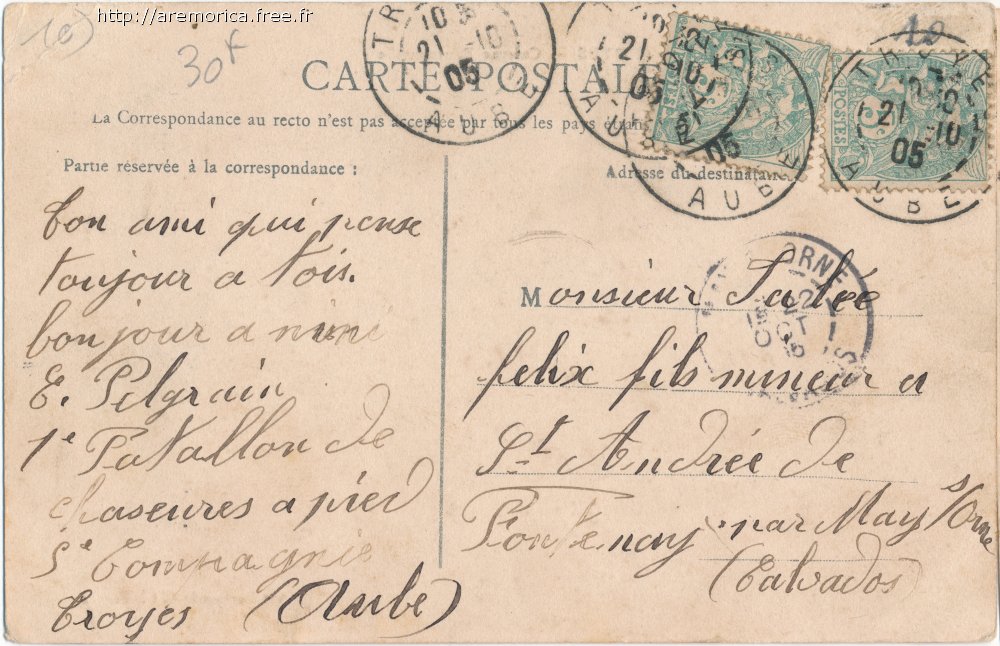 http://aremorica.free.fr
10
30
10
CARTE POSTALE
La Correspondance au recto n'est pas acceptée par tous les pays
Partie réservée à la correspondance :
Adresse du destinataire
TROYES
10
21 -10
05
AUBE
21
10
05
AUBE
05
AUBE
POSTES
TROYES
21 -10
05
AUBE
bon ami qui pense
toujour a tois.
bonjour a mimi
E. Pelgrain
1e Batallon de
chaseures a pied
5e Compagnie
Troyes (Aube)
ORNE
22
OCT
05
CALVADOS
Monsieur
felix fils mineur a
St André de
Fontenay par May s/Orne
(Calvados)